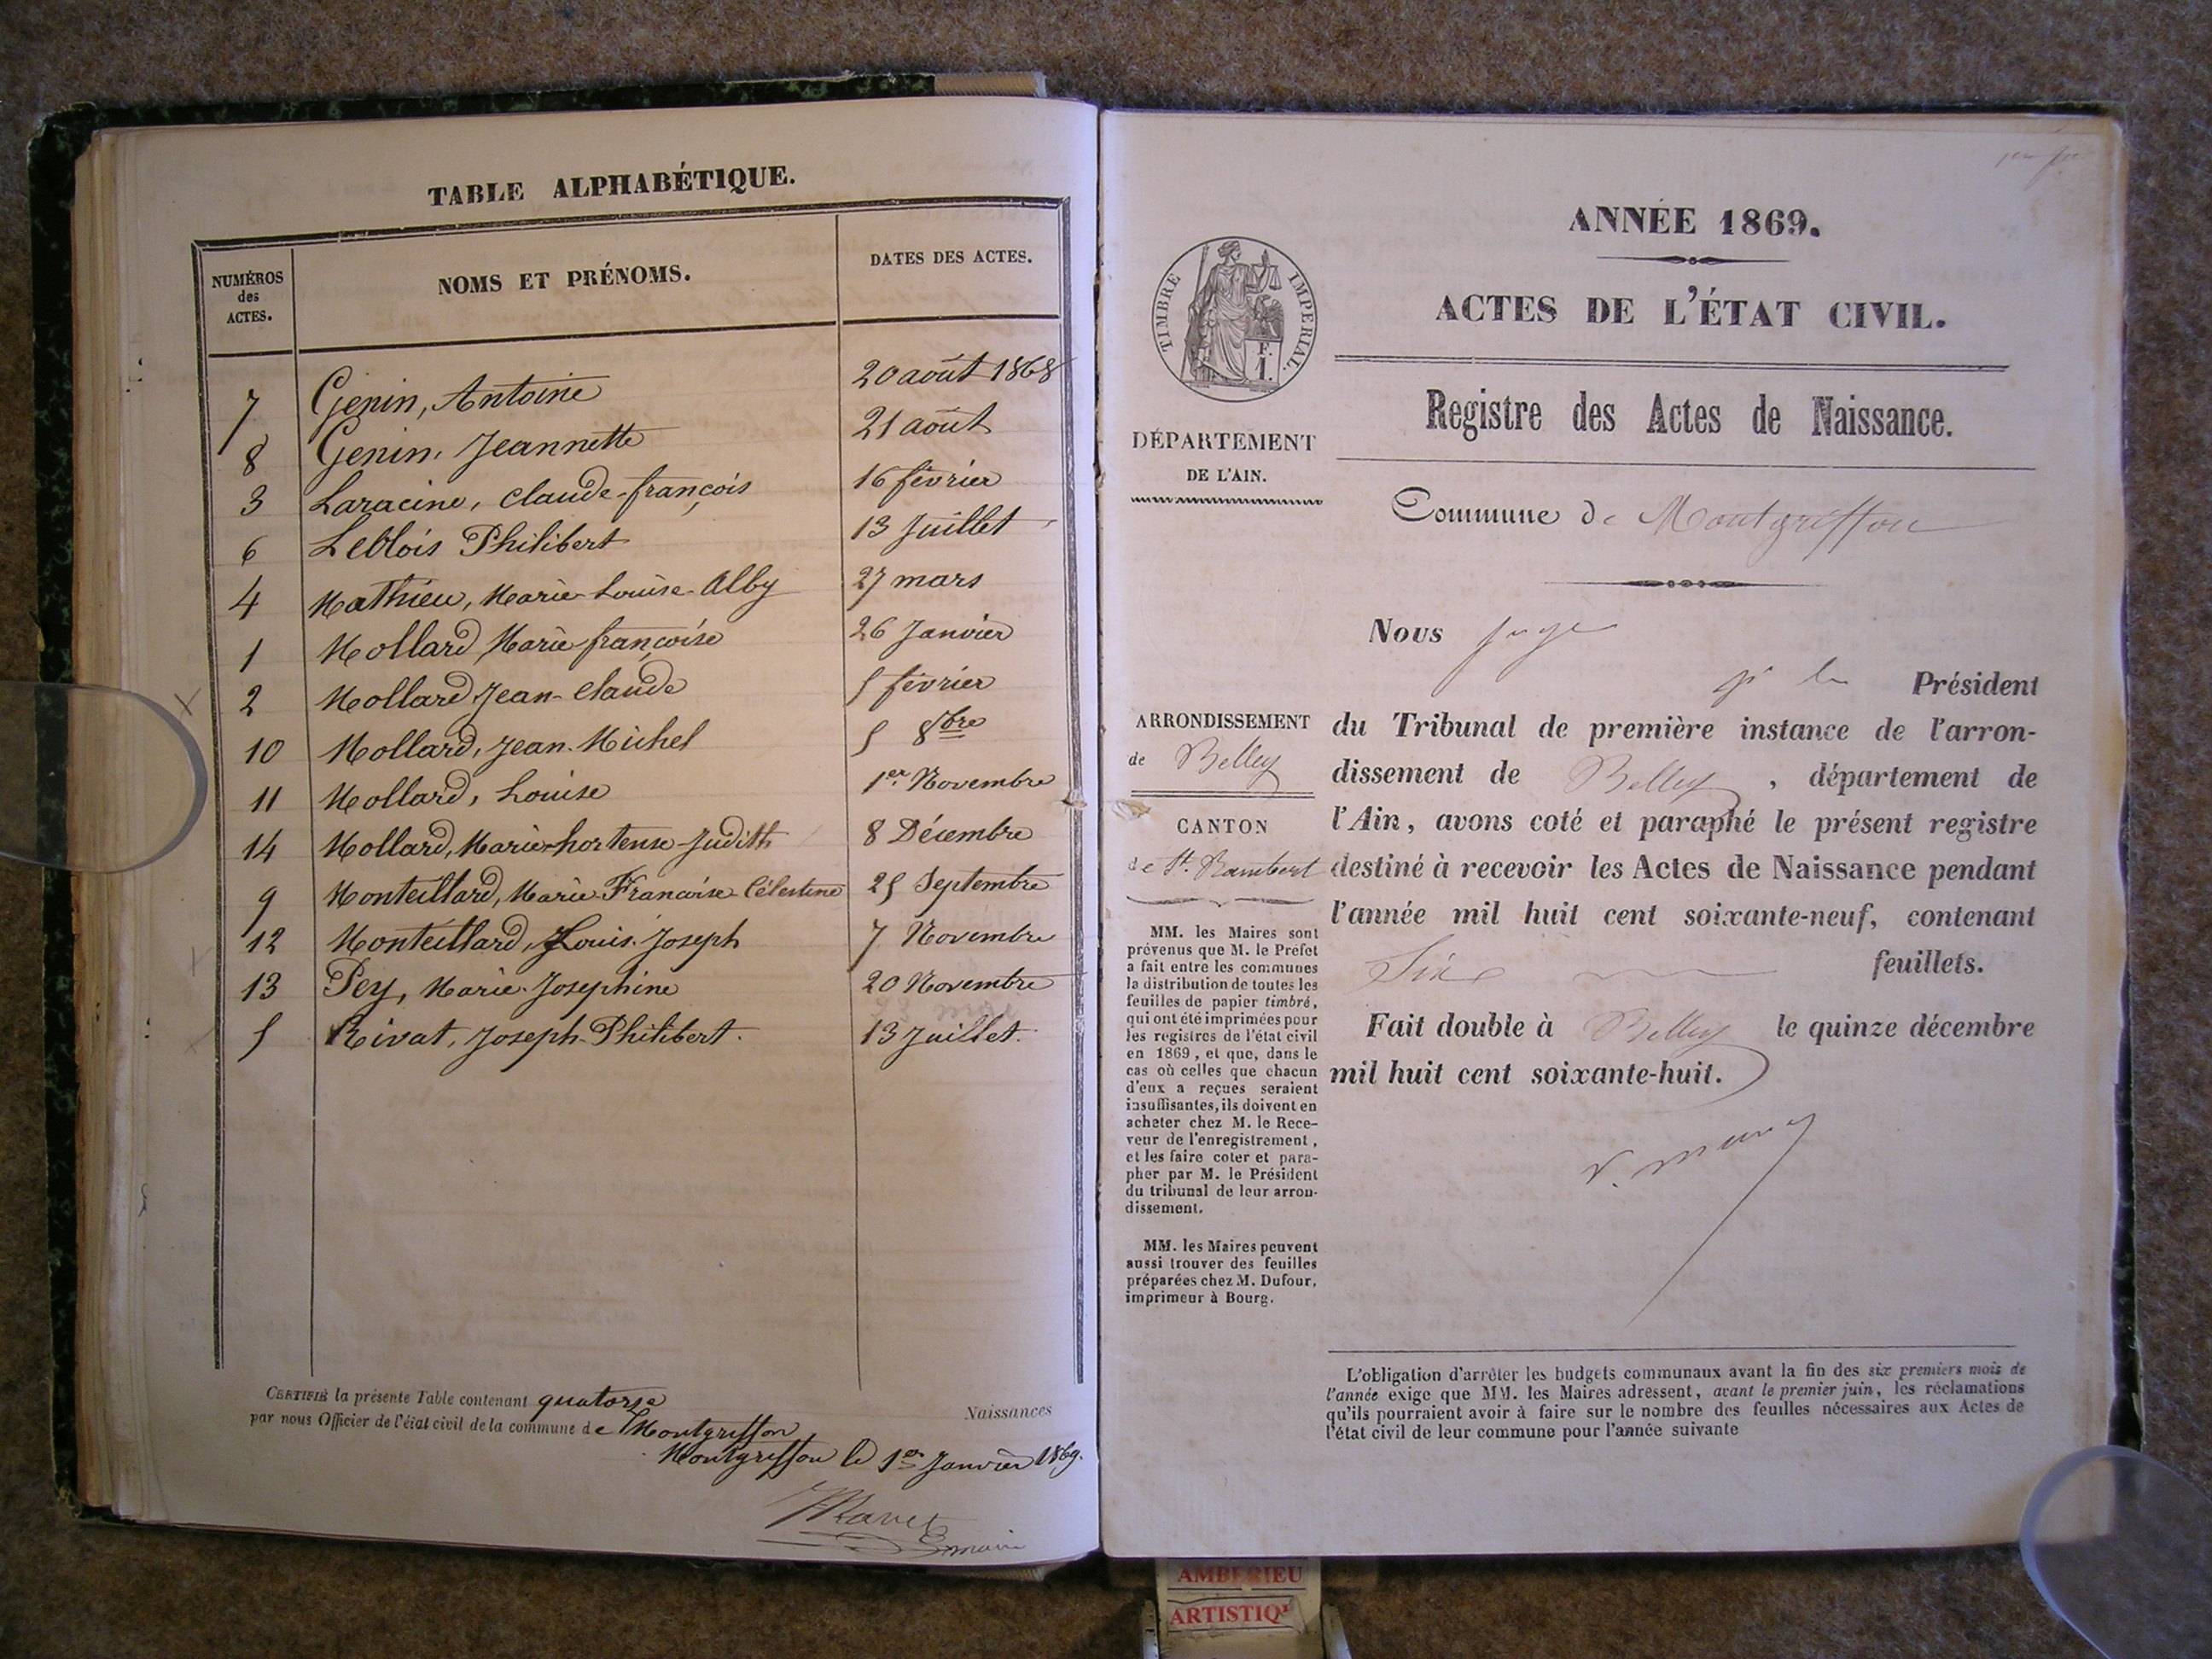 TABLE ALPHABÉTIQUE.
NUMÉROS des ACTES. NOMS ET PRÉNOMS. DATES DES ACTES.
7 Genin, Antoine 20 août 1868
8 Genin, Jeannette 21 août
3 Laracine, Claude-françois 16 février
6 Leblois Philibert 13 Juillet
4 Mathieu, Marie-Louise-Alby 27 mars
1 Mollard Marie françoise 26 Janvier
2 Mollard Jean-Claude 5 février
10 Mollard, Jean-Michel 5 8bre
11 Mollard, Louise 1er Novembre
14 Mollard, Marie-hortense-Judith 8 Décembre
9 Monteillard, Marie-Francoise-Célestine 25 Septembre
12 Monteillard, Louis-Joseph 7 Novembre
13 Pey, Marie-Josephine 20 Novembre
5 Rivat, Joseph-Philibert. 13 Juillet.
CERTIFIÉ la présente Table contenant quatorze Naissances
par nous Officier de l'état civil de la commune de Montgriffon,
Montgriffon le 1er Janvier 1869.
ANNÉE 1869.
ACTES DE L'ÉTAT CIVIL.
TIMBRE IMPERIAL.
F.
1.
Registre des Actes de Naissance.
DÉPARTEMENT
DE L'AIN.
Commune de Montgriffon
ARRONDISSEMENT
de Belley
CANTON
de St. Rambert
MM. les Maires sont
prévenus que M. le Préfet
a fait entre les communes
la distribution de toutes les
feuilles de papier timbré,
qui ont été imprimées pour
les registres de l'état civil
en 1869, et que, dans le
cas où celles que chacun
d'eux a reçues seraient
insuffisantes, ils doivent en
acheter chez M. le Rece-
veur de l'enregistrement,
et les faire coter et para-
pher par M. le Président
du tribunal de leur arron-
dissement.
MM. les Maires peuvent
aussi trouver des feuilles
préparées chez M. Dufour,
imprimeur à Bourg.
Nous juge
Président
du Tribunal de première instance de l'arron-
dissement de Belley, département de
l'Ain, avons coté et paraphé le présent registre
destiné à recevoir les Actes de Naissance pendant
l'année mil huit cent soixante-neuf, contenant
Six feuillets.
Fait double à Belley le quinze décembre
mil huit cent soixante-huit.
L'obligation d'arrêter les budgets communaux avant la fin des six premiers mois de
l'année exige que MM. les Maires adressent, avant le premier juin, les réclamations
qu'ils pourraient avoir à faire sur le nombre des feuilles nécessaires aux Actes de
l'état civil de leur commune pour l'année suivante
AMBERIEU
ARTISTIQ